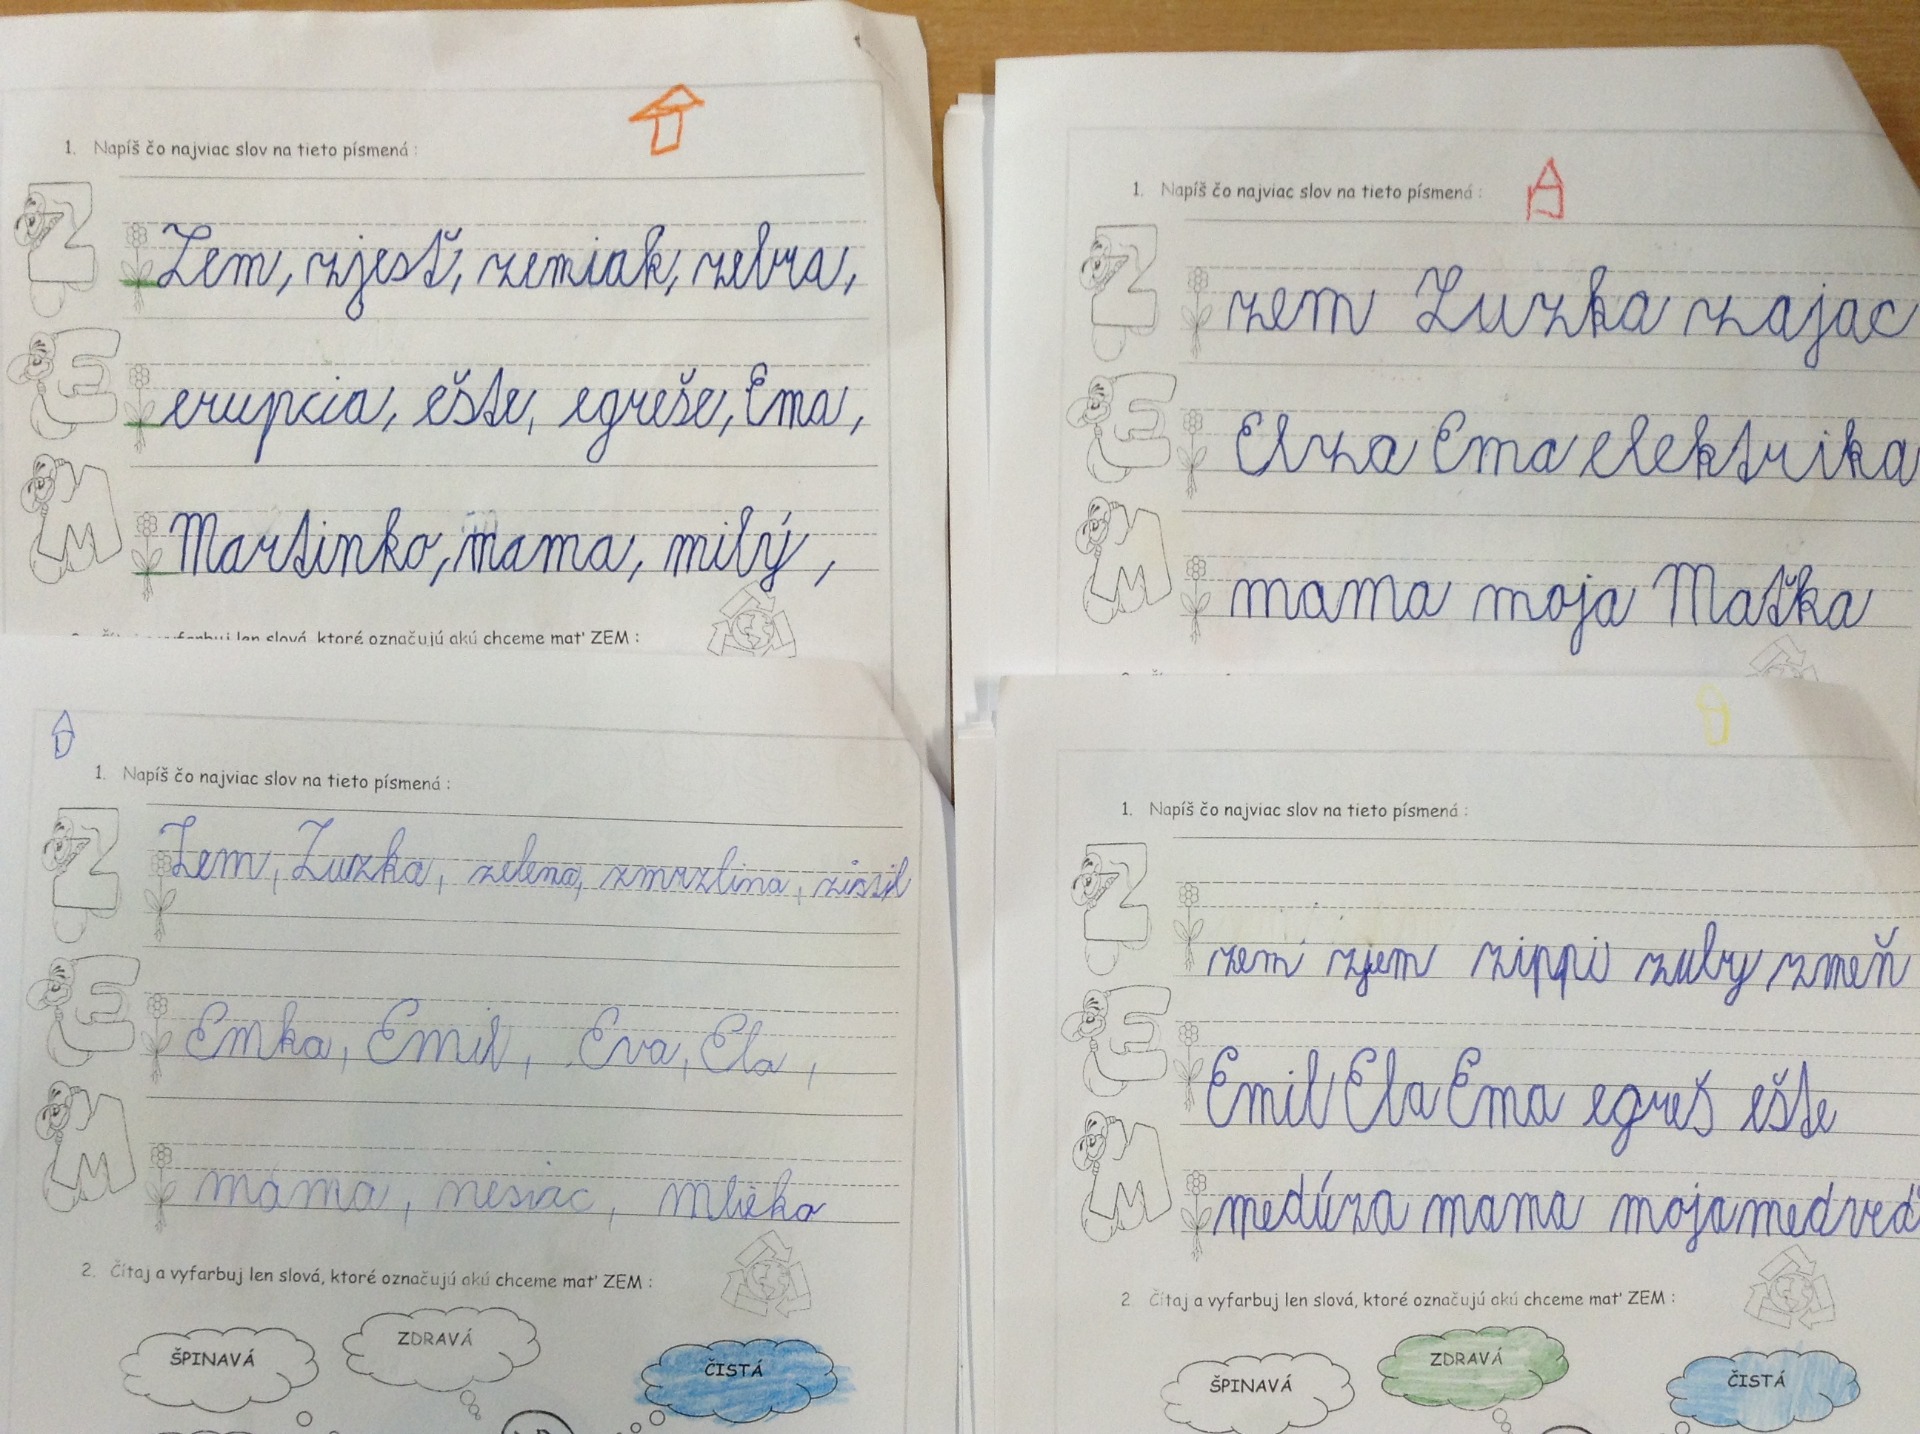 1. Napíš čo najviac slov na tieto písmená :
Z Zem, zjesť, zemiak, zebra,
E erupcia, ešte, egreše, Ema,
M Martinko, mama, milý,
ktoré označujú akú chceme mať ZEM :
1. Napíš čo najviac slov na tieto písmená :
Z zem Zuzka zajac
E Elza Ema elektrika
M mama moja Maťka
1. Napíš čo najviac slov na tieto písmená :
Z Zem, Zuzka, zelena, zmrzlina,
E Emka, Emil, Eva, Ela,
M mama, mesiac, Mlieko
2. Čítaj a vyfarbuj len slová, ktoré označujú akú chceme mať ZEM :
ŠPINAVÁ ZDRAVÁ ČISTÁ
1. Napíš čo najviac slov na tieto písmená :
Z zem zjem zippi zuby zmeň
E Emil Ela Ema egreš ešte
M medúza mama moja medveď
2 Čítaj a vyfarbuj len slová, ktoré označujú akú chceme mať ZEM :
ŠPINAVÁ ZDRAVÁ ČISTÁ